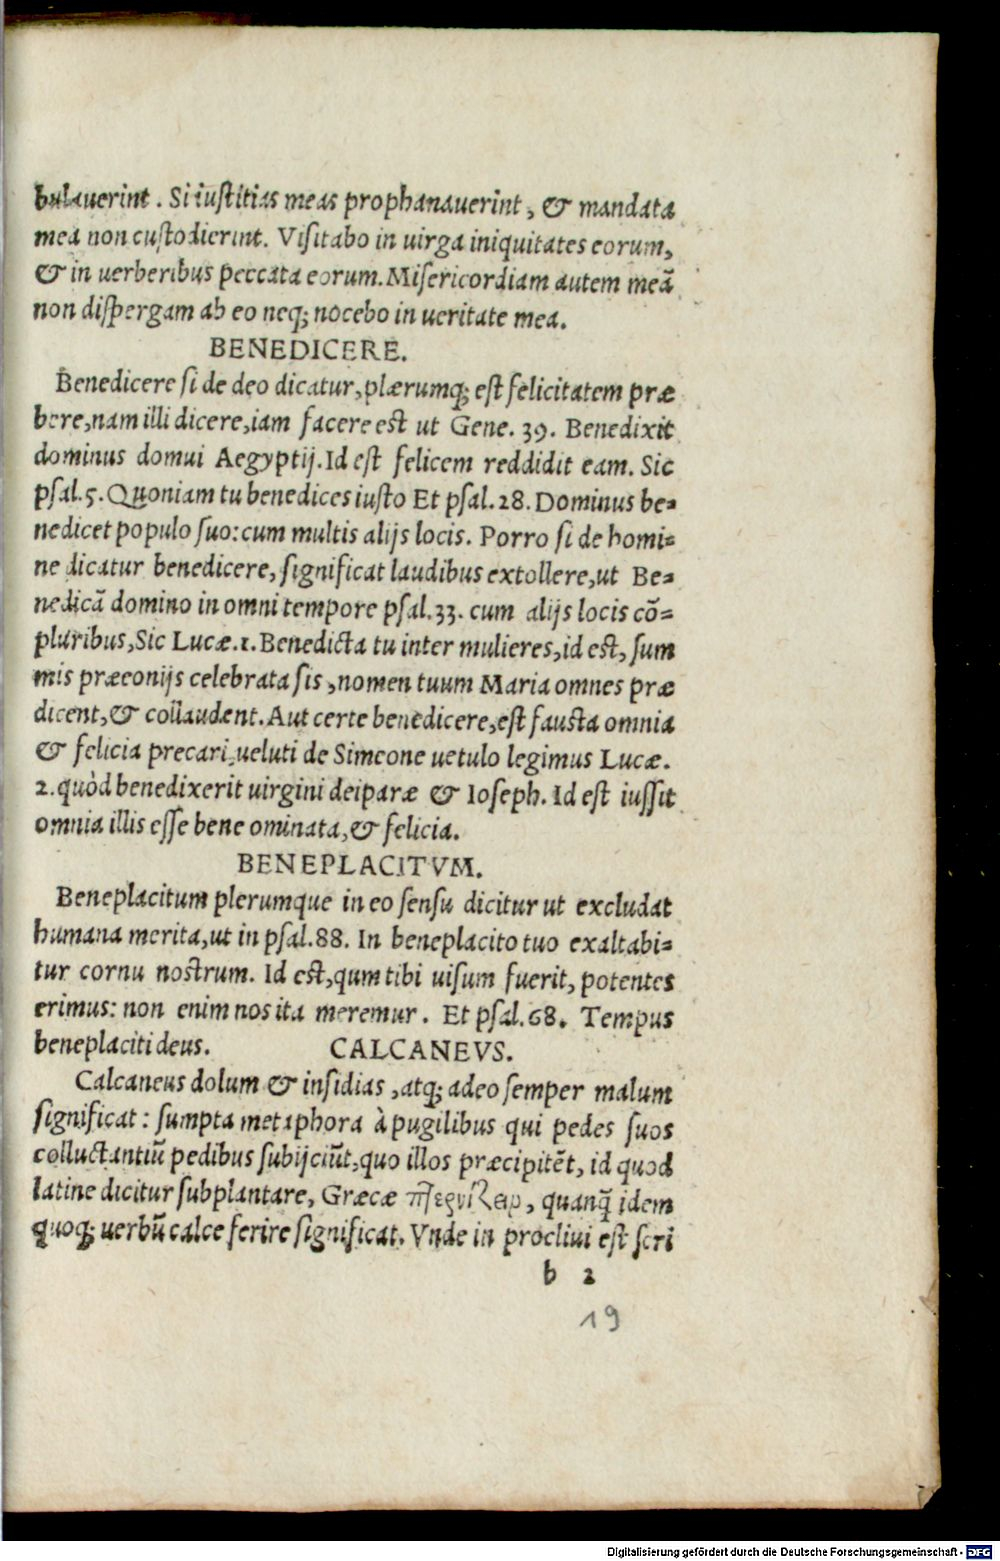 bulauerint. Si iustitias meas prophanauerint, & mandata
mea non custodierint. Visitabo in uirga iniquitates eorum,
& in uerberibus peccata eorum. Misericordiam autem meã
non dispergam ab eo neq; nocebo in ueritate mea.
BENEDICERE.
Benedicere si de deo dicatur, plærumq; est felicitatem præ
bere, nam illi dicere, iam facere est ut Gene. 39. Benedixit
dominus domui Aegyptij. Id est felicem reddidit eam. Sic
psal. 5. Quoniam tu benedices iusto Et psal. 28. Dominus be=
nedicet populo suo: cum multis alijs locis. Porro si de homi=
ne dicatur benedicere, significat laudibus extollere, ut Be=
nedicã domino in omni tempore psal. 33. cum alijs locis cõ=
pluribus, Sic Lucæ. 1. Benedicta tu inter mulieres, id est, sum
mis præconijs celebrata sis, nomen tuum Maria omnes præ
dicent, & collaudent. Aut certe benedicere, est fausta omnia
& felicia precari, ueluti de Simeone uetulo legimus Lucæ.
2. quòd benedixerit uirgini deiparæ & Ioseph. Id est iussit
omnia illis esse bene ominata, & felicia.
BENEPLACITVM.
Beneplacitum plerumque in eo sensu dicitur ut excludat
humana merita, ut in psal. 88. In beneplacito tuo exaltabi=
tur cornu nostrum. Id est, qum tibi uisum fuerit, potentes
erimus: non enim nos ita meremur. Et psal. 68. Tempus
beneplaciti deus. CALCANEVS.
Calcaneus dolum & insidias, atq; adeo semper malum
significat: sumpta metaphora à pugilibus qui pedes suos
colluctantiũ pedibus subijciũt, quo illos præcipitẽt, id quod
latine dicitur subplantare, Græcæ πτερνίζειν, quanq̃ idem
quoq; uerbũ calce ferire significat. Vnde in procliui est scri
b 2
19
Digitalisierung gefördert durch die Deutsche Forschungsgemeinschaft - DFG